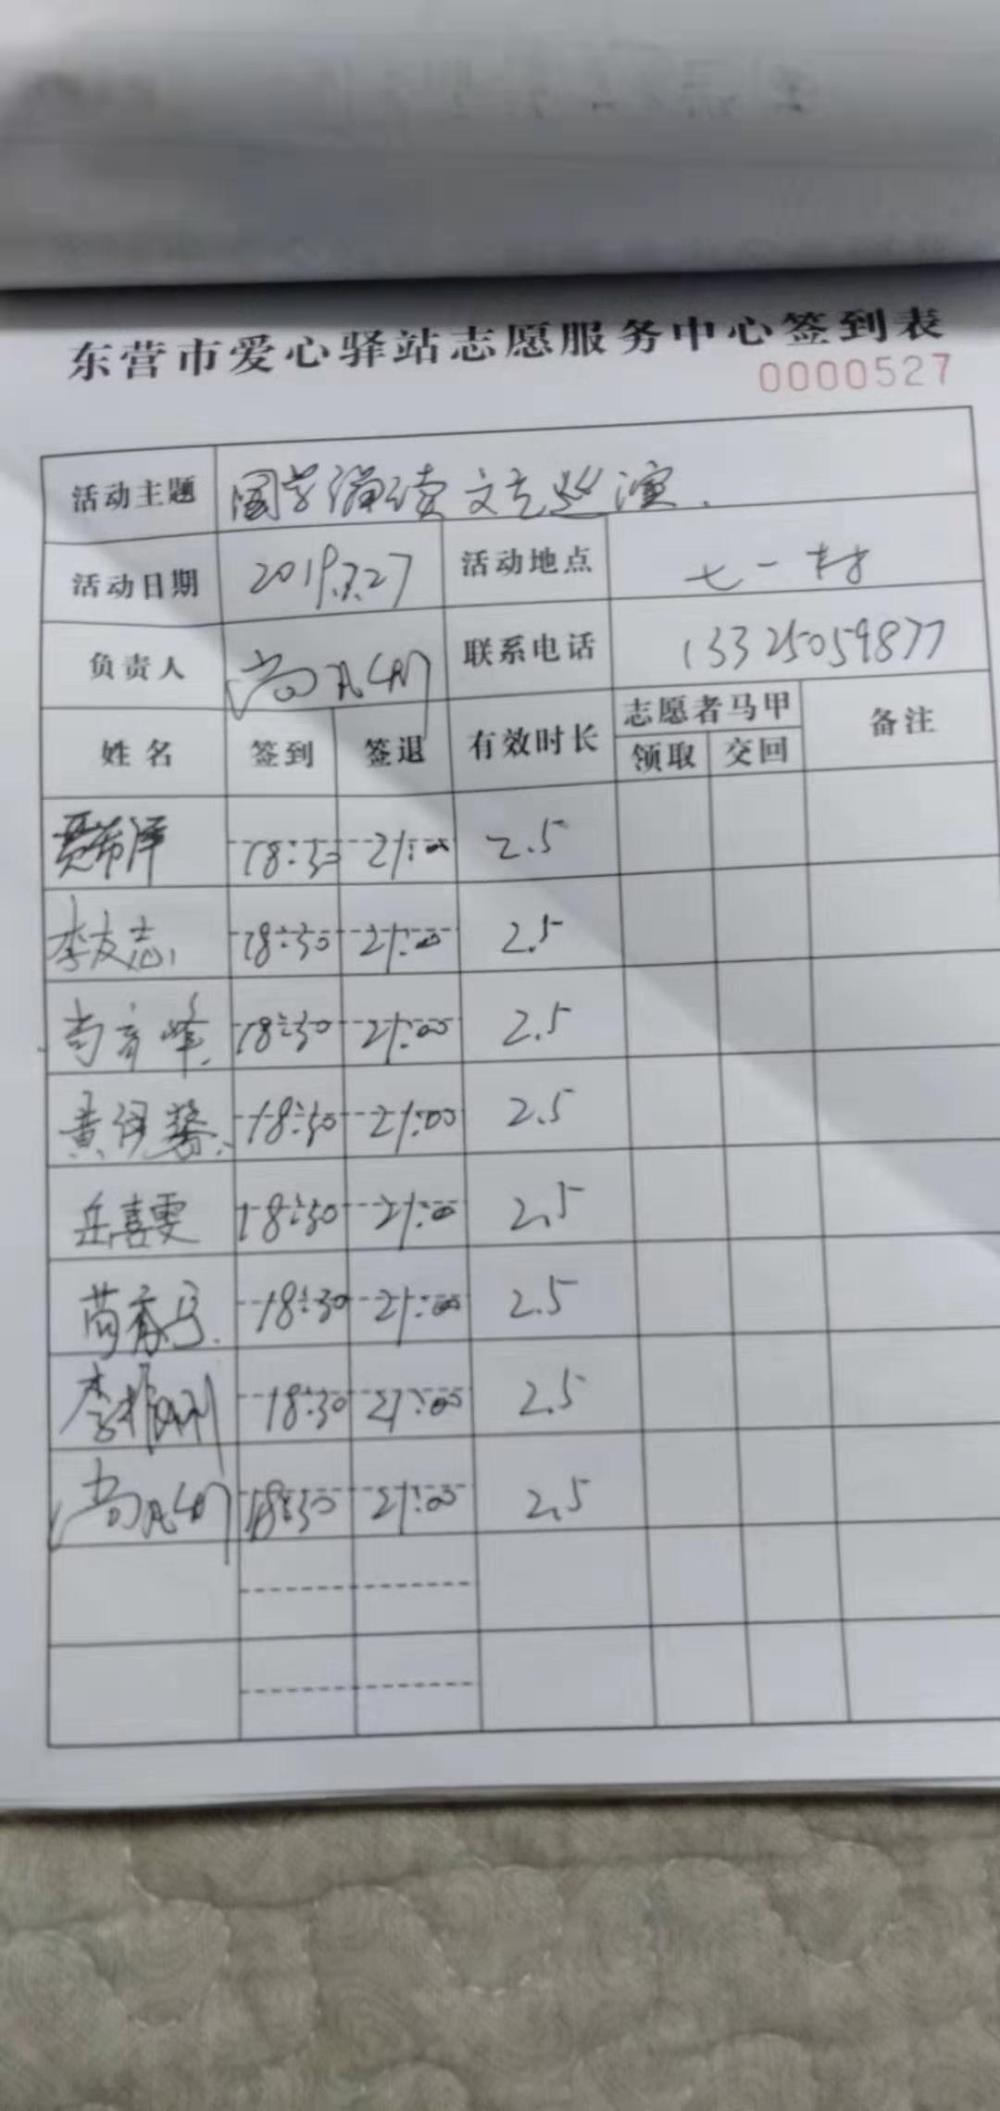 东营市爱心驿站志愿服务中心签到表
0000527
活动主题 国学诵读文艺巡演.
活动日期 2019.7.27 活动地点 七一村
负责人 尚 联系电话 13325059877
姓名 签到 签退 有效时长 志愿者马甲 备注
领取 交回
贾希泽 18:30 21:00 2.5
李友志 18:30 21:00 2.5
尚 峰 18:30 21:00 2.5
黄 馨 18:30 21:00 2.5
岳喜雯 18:30 21:00 2.5
18:30 21:00 2.5
李 刚 18:30 21:00 2.5
尚 18:30 21:00 2.5